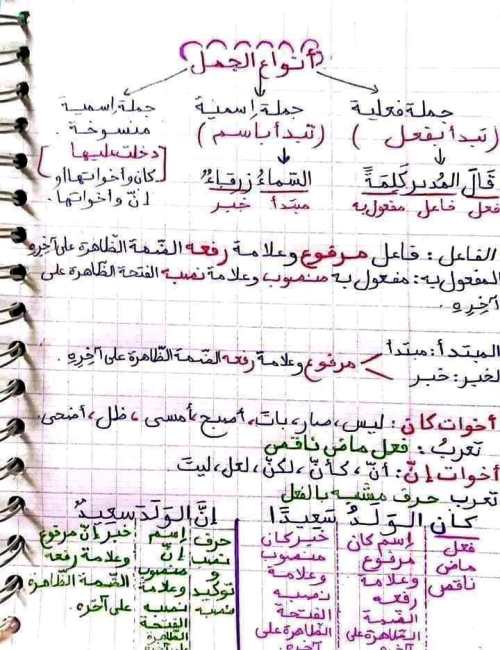 أنواع الجمل
جملة فعلية
(تبدأ بفعل)
قَالَ المُديرُ كَلِمَةً
فعل فاعل مفعول به
جملة اسمية
(تبدأ باسم)
السَّماءُ زرقاءٌ
مبتدأ خبر
جملة اسمية
منسوخة.
[دخلت عليها]
كان وأخواتها أو
إنّ وأخواتها.
الفاعل: فاعل مرفوع وعلامة رفعه الضمة الظاهرة على آخره
المفعول به: مفعول به منصوب وعلامة نصبه الفتحة الظاهرة على
آخِرِهِ.
المبتدأ: مبتدأ
لخبر: خبر
مرفوع وعلامة رفعه الضمة الظاهرة على آخِرِهِ.
أخوات كان: ليس، صار، باتَ، أصبح، أمسى، ظل، أضحى.
تعربُ: فعل ماض ناقص
أخوات إنّ: أنّ، كأنّ، لكنّ، لعل، ليتَ.
تعرب حرف مشبه بالفعل
كان الوَلَدُ سَعِيدًا
فعل
ماض
ناقص
اسم كان
مرفوع
وعلامة
رفعه
الضمة
الظاهرة على
آخره
خبر كان
منصوب
وعلامة
نصبه
الفتحة
الظاهرة على
آخره.
إنَّ الوَلَدَ سَعِيدٌ
حرف
نصب
و
توكيد
نصبه
اسم
إنّ
منصوب
وعلامة
نصبه
الفتحة
الظاهرة
على آخره
خبر إنّ مرفوع
وعلامة رفعه
الضمة الظاهرة
على آخره.